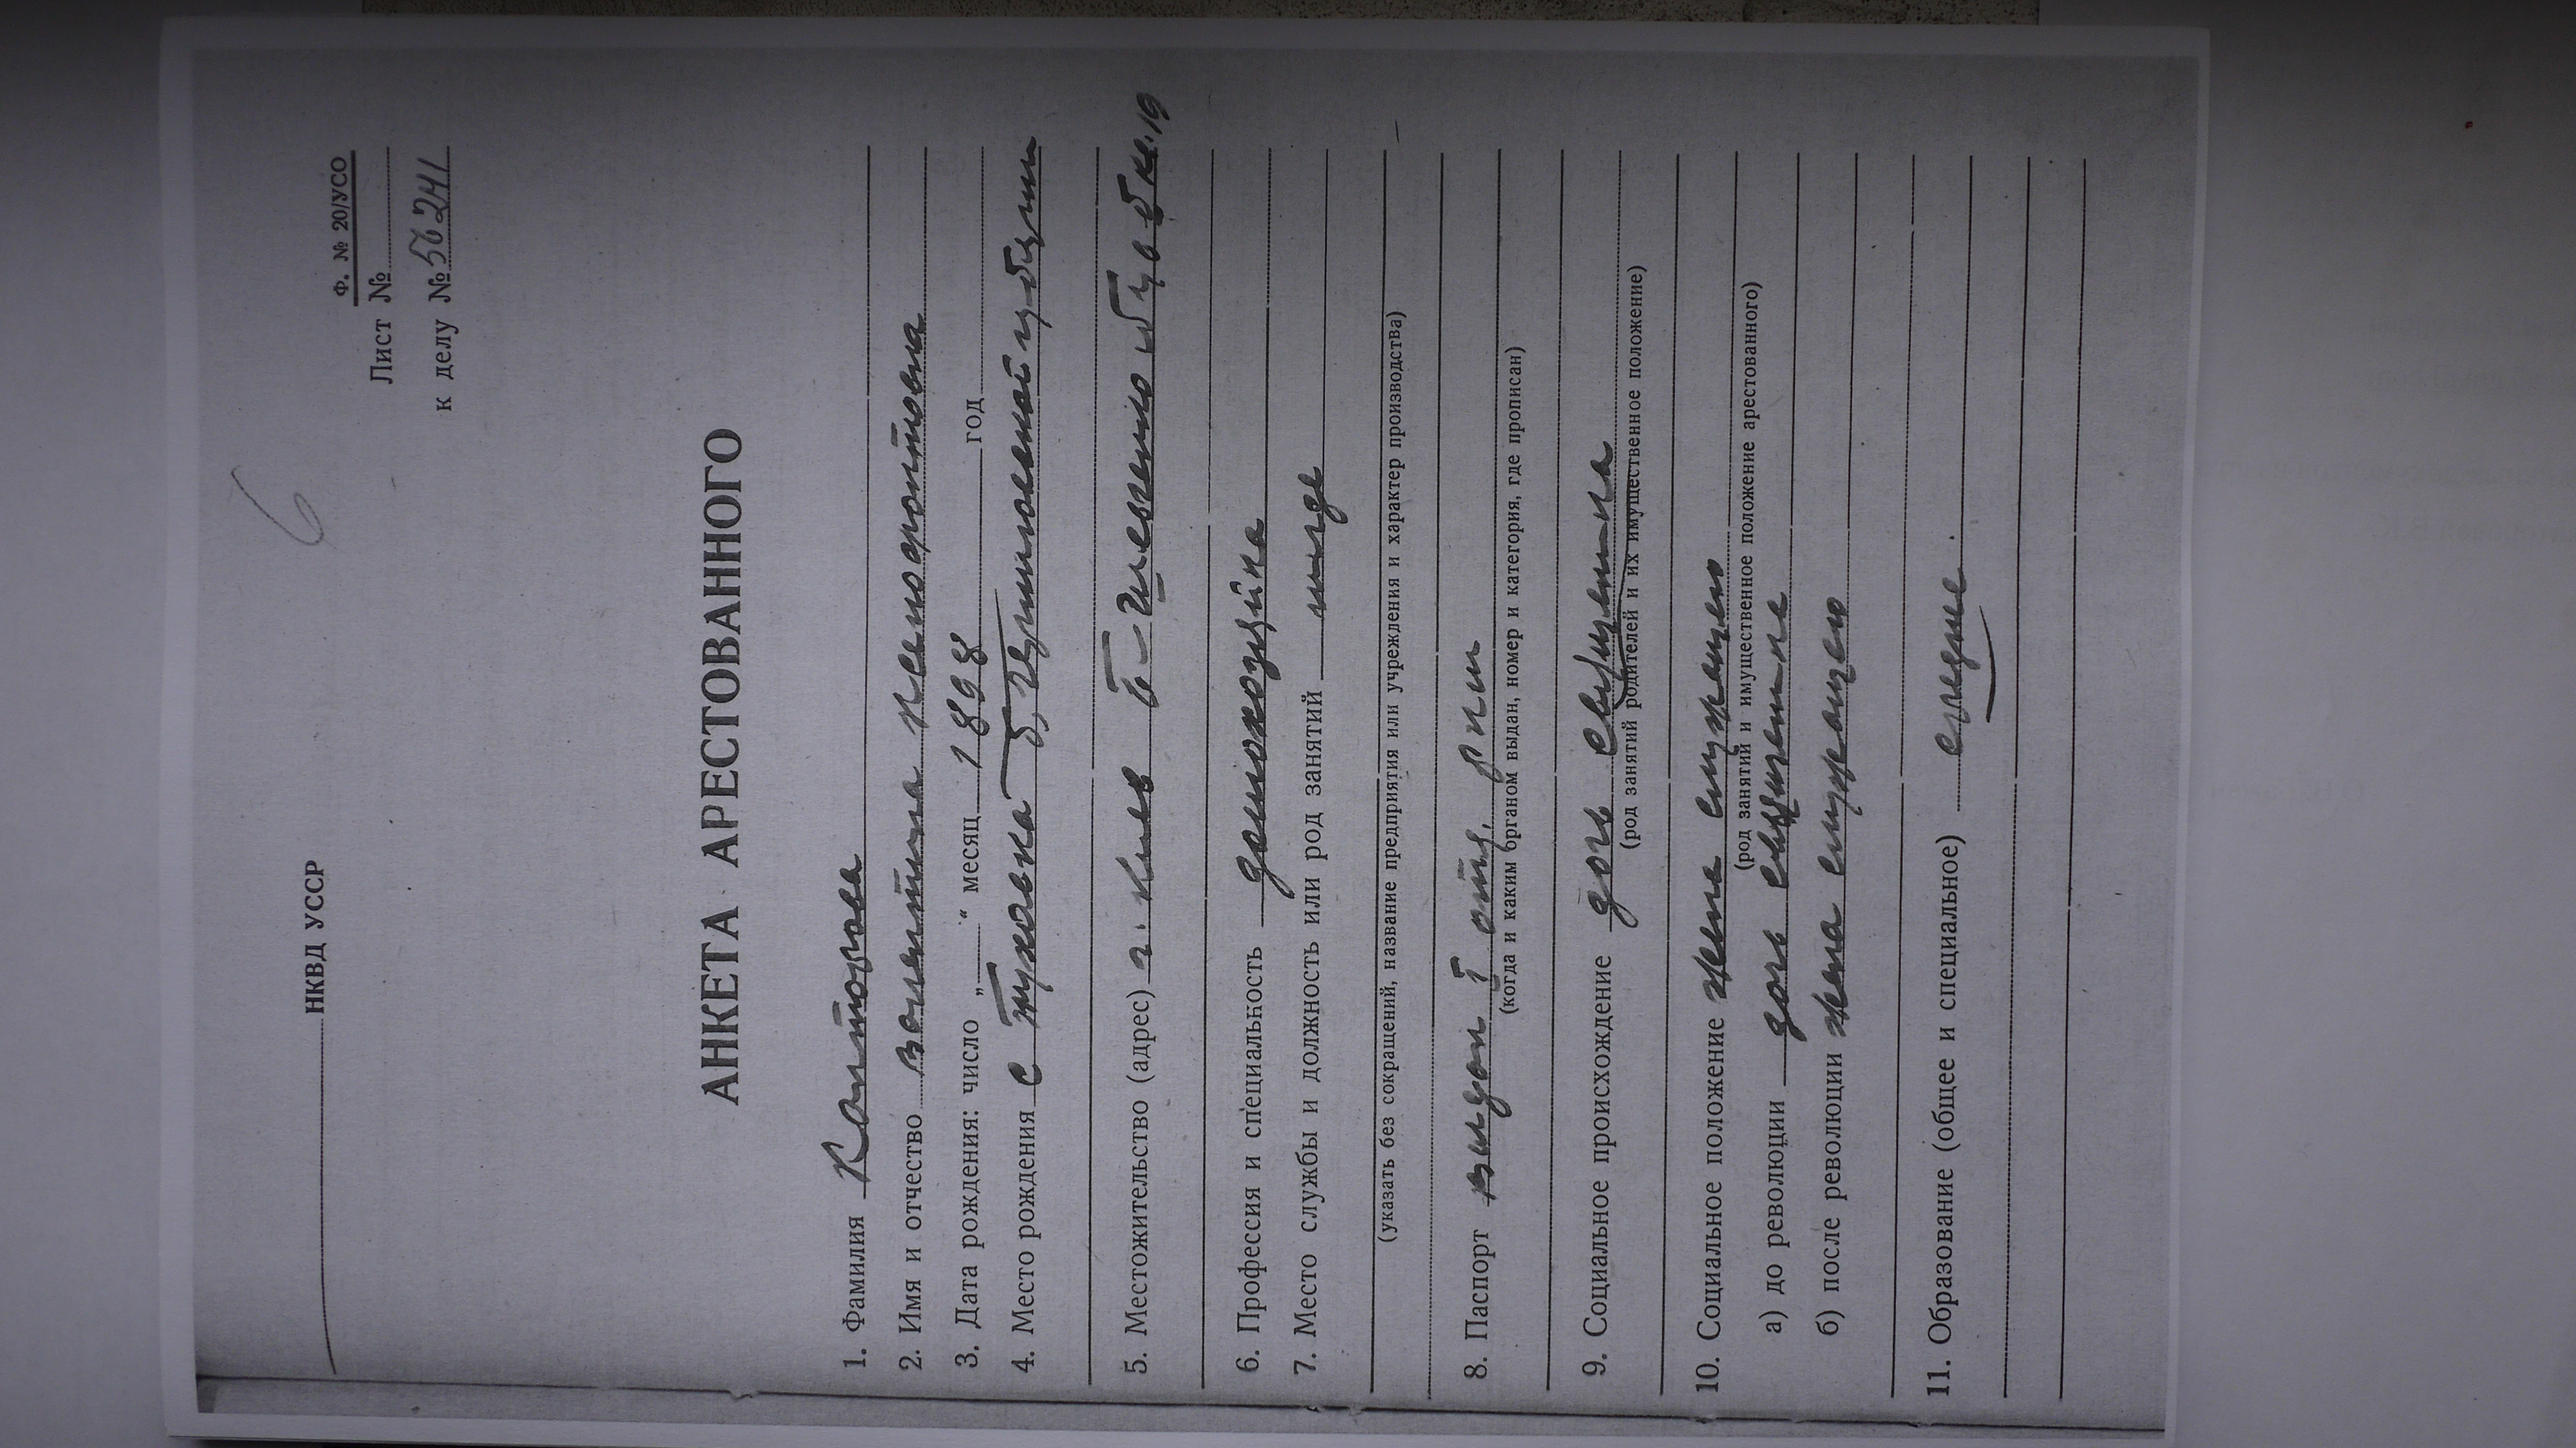 6
НКВД УССР
Ф. № 20/УСО
Лист №
к делу № 56241
АНКЕТА АРЕСТОВАННОГО
1. Фамилия Канторова
2. Имя и отчество Валентина Ксенофонтовна
3. Дата рождения: число „ “ месяц 1898 год
4. Место рождения с Жуковка б,
5. Местожительство (адрес) г. Киев б-Шевченко кв. 19
6. Профессия и специальность домохозяйка
7. Место службы и должность или род занятий нигде
(указать без сокращений, название предприятия или учреждения и характер производства)
8. Паспорт выдан 7 отд. РКМ
(когда и каким органом выдан, номер и категория, где прописан)
9. Социальное происхождение дочь священика
(род занятий родителей и их имущественное положение)
10. Социальное положение жена служащего
(род занятий и имущественное положение арестованного)
а) до революции дочь священика
б) после революции жена служащего
11. Образование (общее и специальное) среднее.